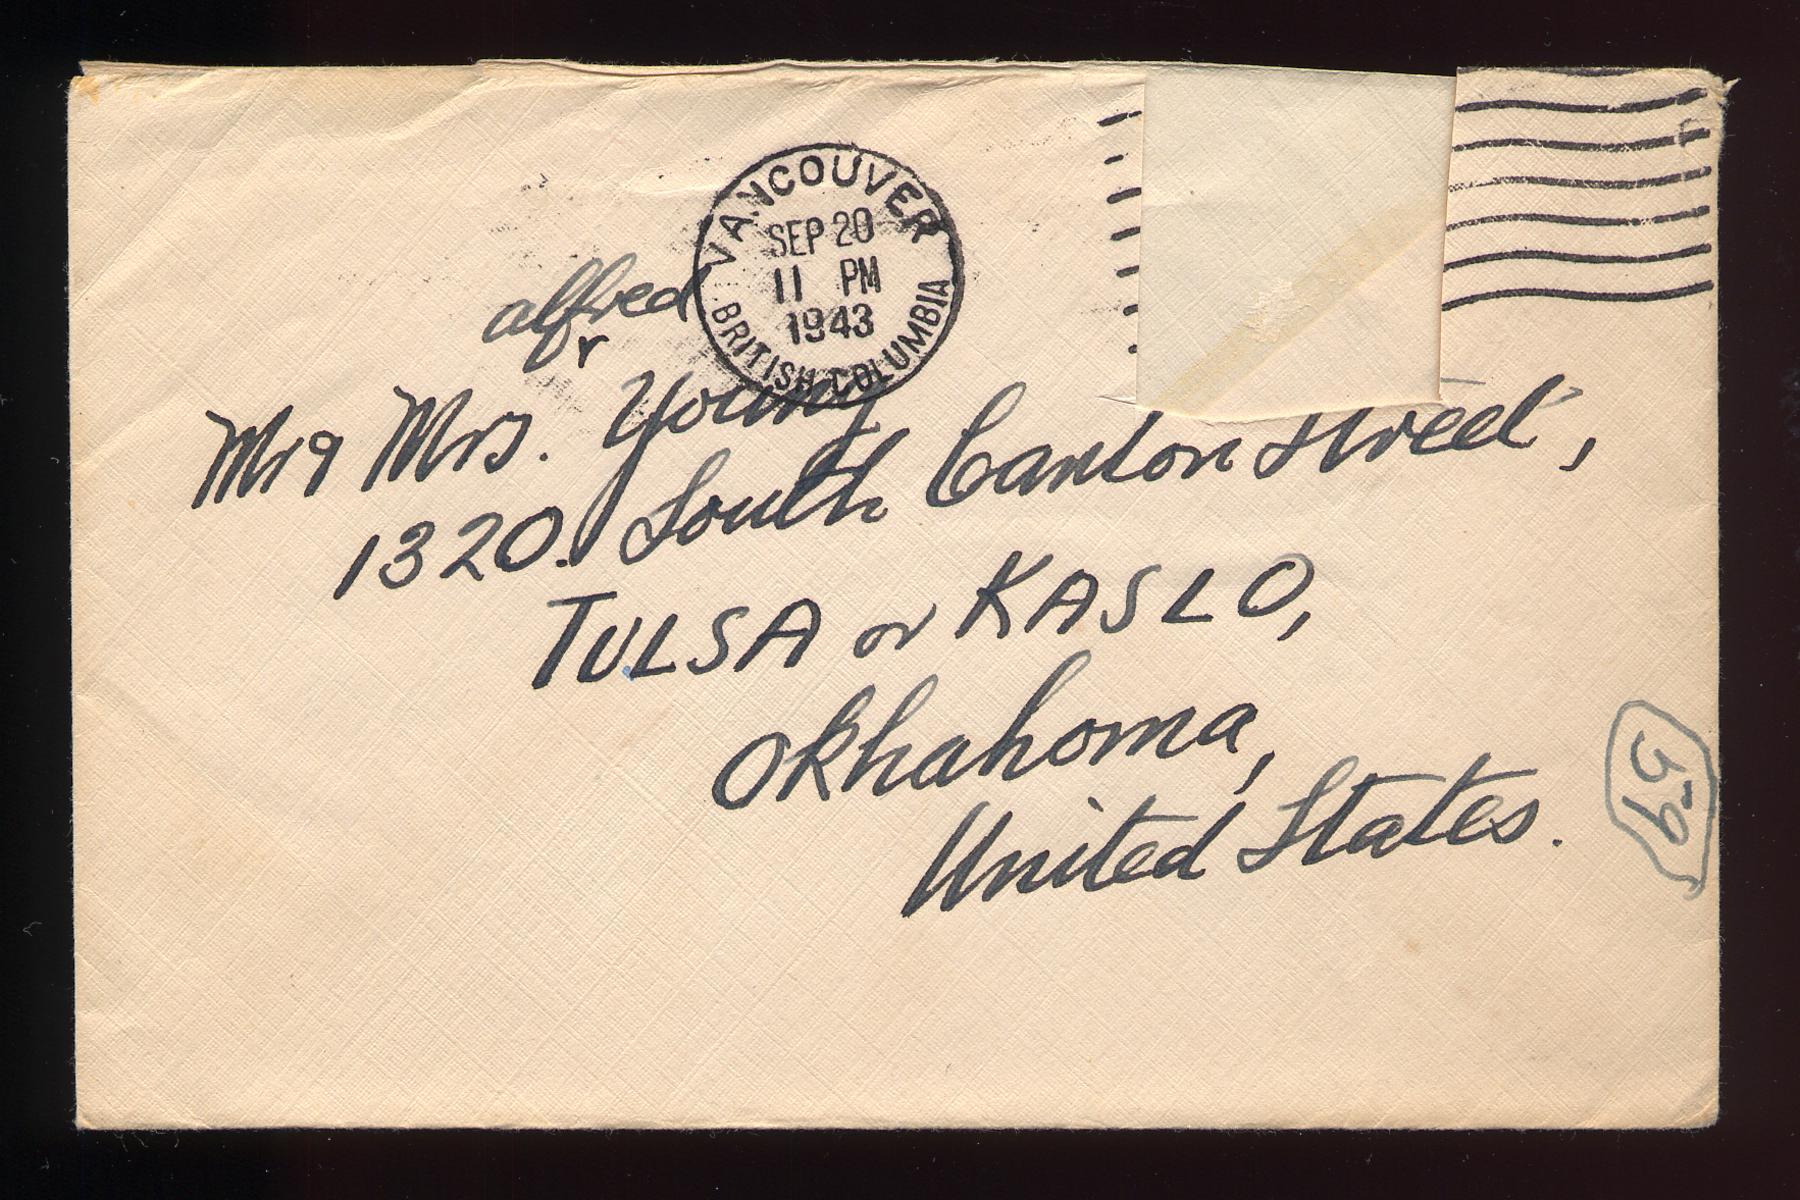 VANCOUVER
SEP 20
11 PM
1943
BRITISH COLUMBIA
alfred
r
Mr & Mrs. Young
1320. South Canton Street,
TULSA or KASLO,
Okhahoma,
United States.
59